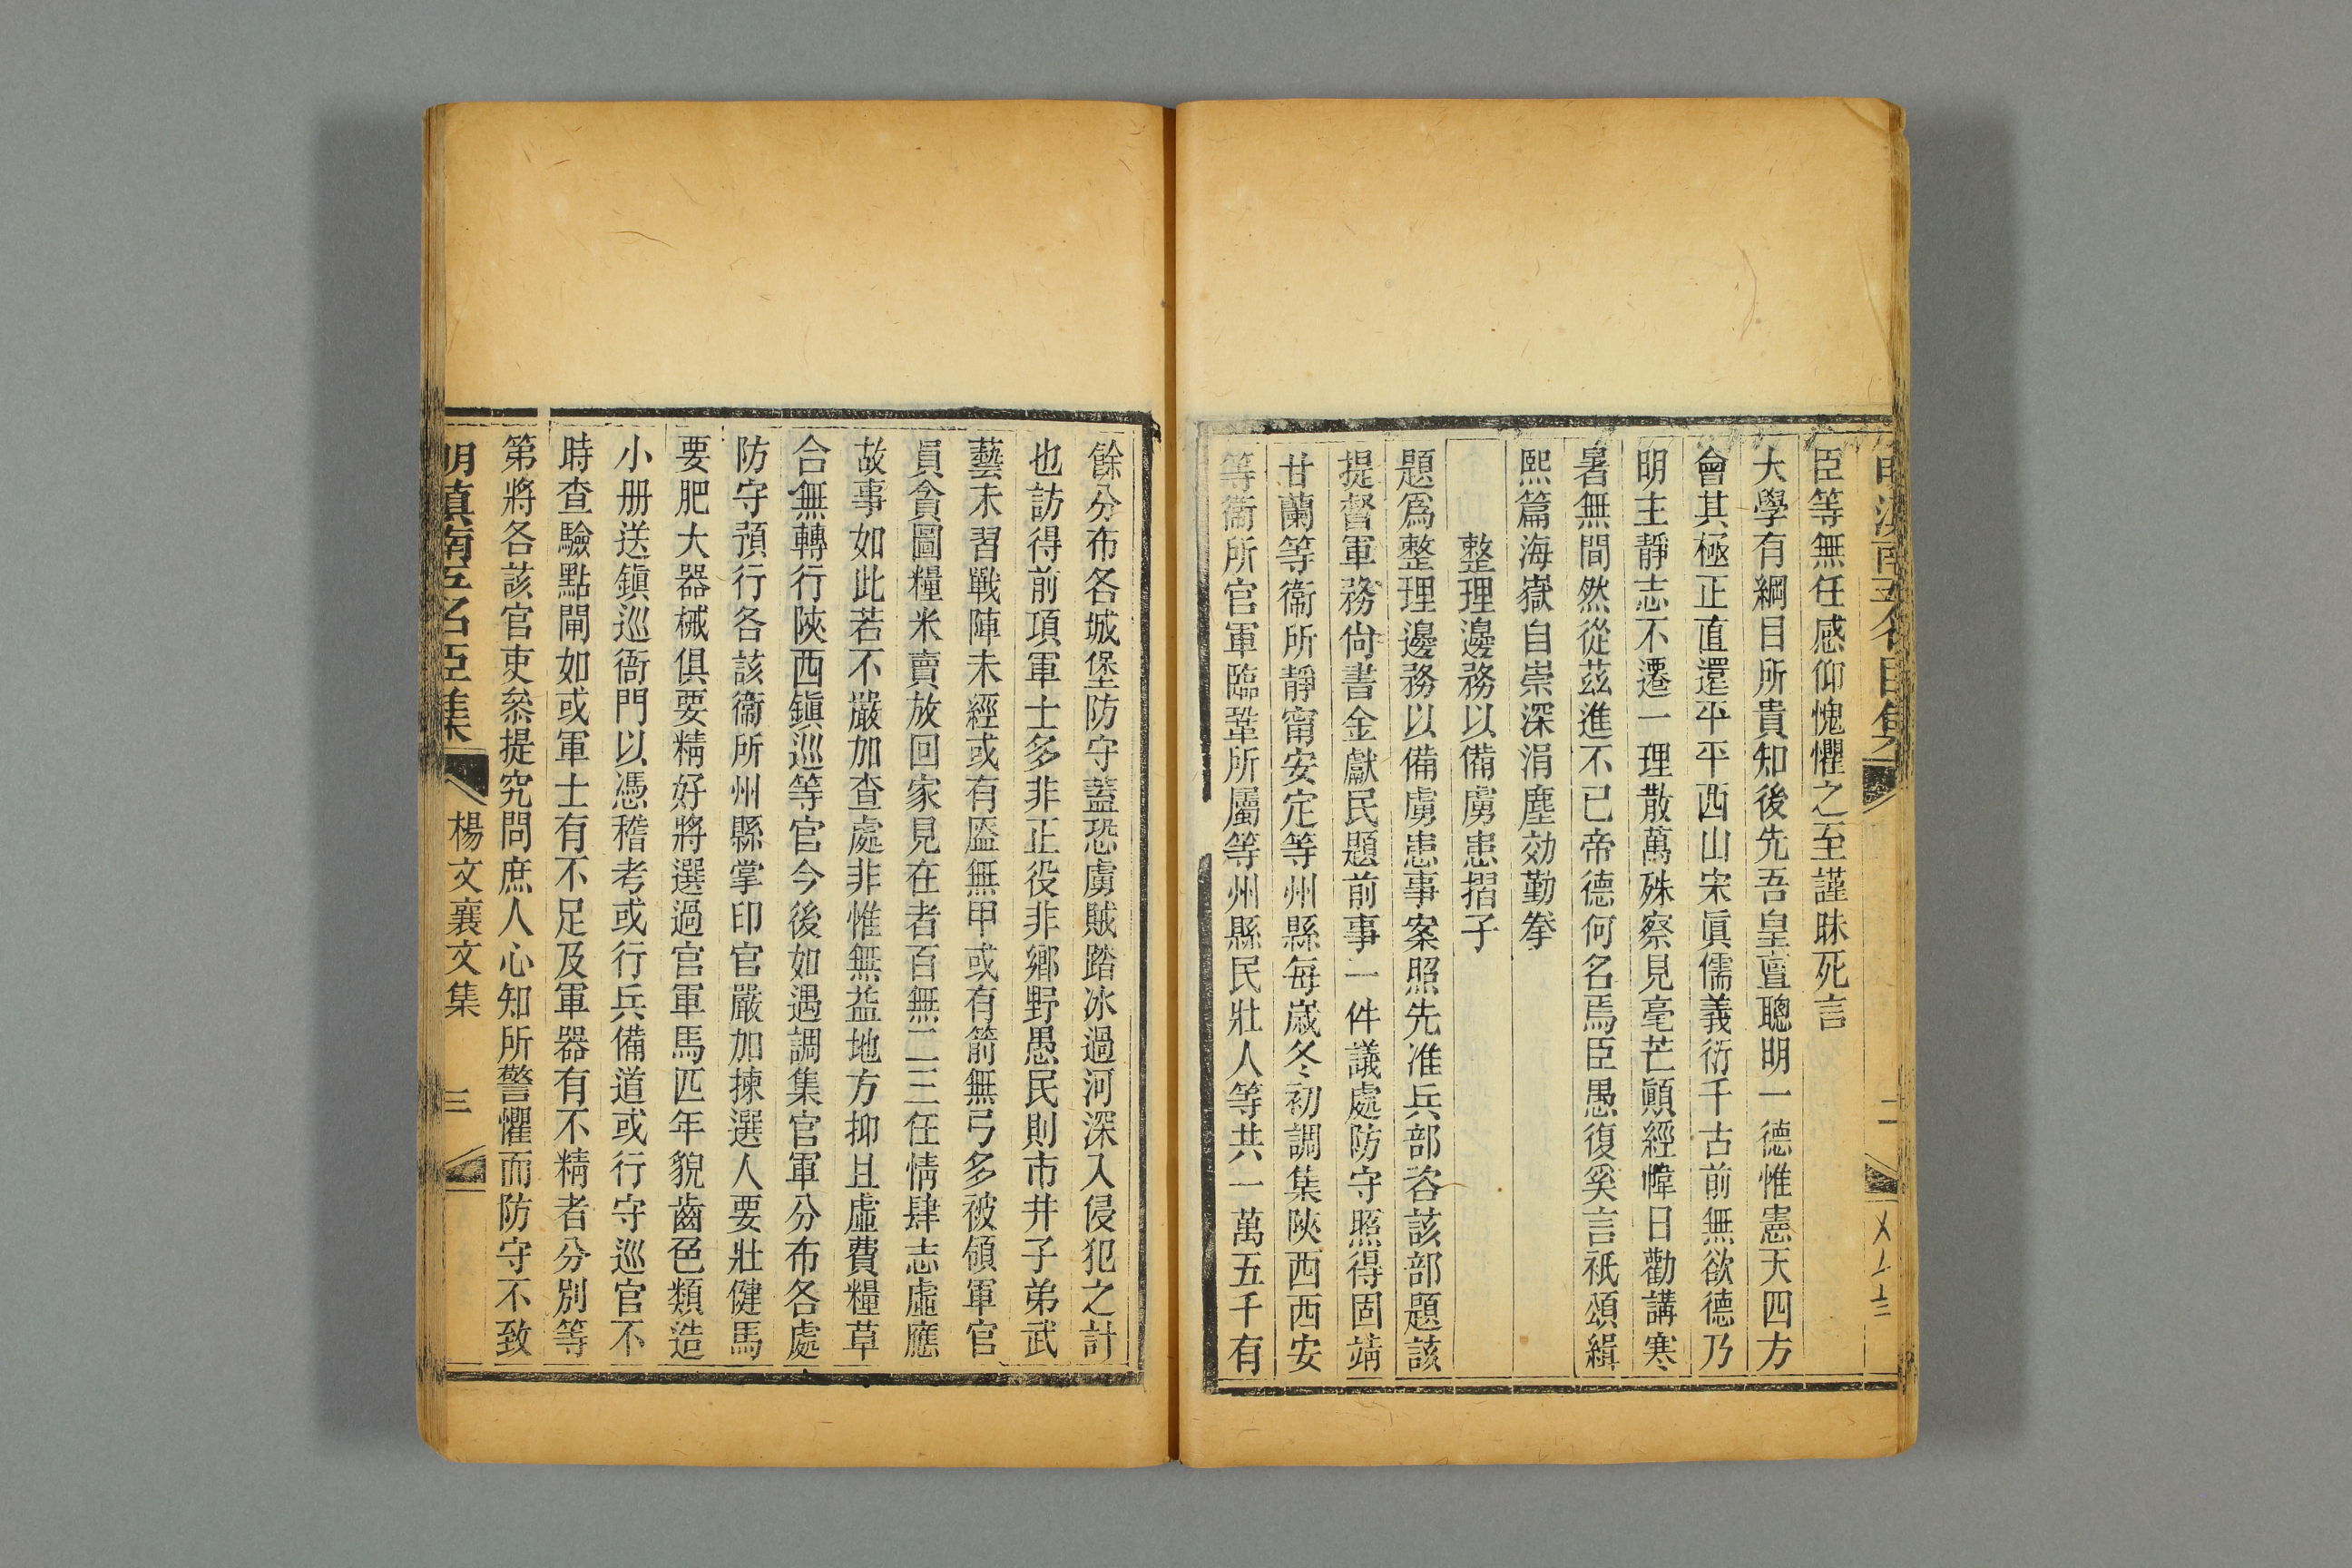 臣等無任感仰愧懼之至謹昧死言
大學有綱目所貴知後先吾皇亶聰明一德惟憲天四方
會其極正直還平平西山宋眞儒義衍千古前無欲德乃
明主靜志不遷一理散萬殊察見毫芒顚經幃日勸講寒
暑無間然從茲進不已帝德何名焉臣愚復奚言祇頌緝
熙篇海嶽自崇深涓塵効勤拳
整理邊務以備虜患摺子
題爲整理邊務以備虜患事案照先准兵部咨該部題該
提督軍務尙書金獻民題前事一件議處防守照得固靖
甘蘭等衞所靜甯安定等州縣每歲冬初調集陝西西安
等衞所官軍臨鞏所屬等州縣民壯人等共一萬五千有
餘分布各城堡防守蓋恐虜賊踏冰過河深入侵犯之計
也訪得前項軍士多非正役非鄉野愚民則市井子弟武
藝未習戰陣未經或有盔無甲或有箭無弓多被領軍官
員貪圖糧米賣放回家見在者百無二三任情肆志虛應
故事如此若不嚴加查處非惟無益地方抑且虛費糧草
合無轉行陝西鎭巡等官今後如遇調集官軍分布各處
防守預行各該衞所州縣掌印官嚴加揀選人要壯健馬
要肥大器械俱要精好將選過官軍馬匹年貌齒色類造
小册送鎭巡衙門以憑稽考或行兵備道或行守巡官不
時查驗點閘如或軍士有不足及軍器有不精者分別等
第將各該官吏叅提究問庶人心知所警懼而防守不致
明滇南五名臣集 楊文襄文集 三